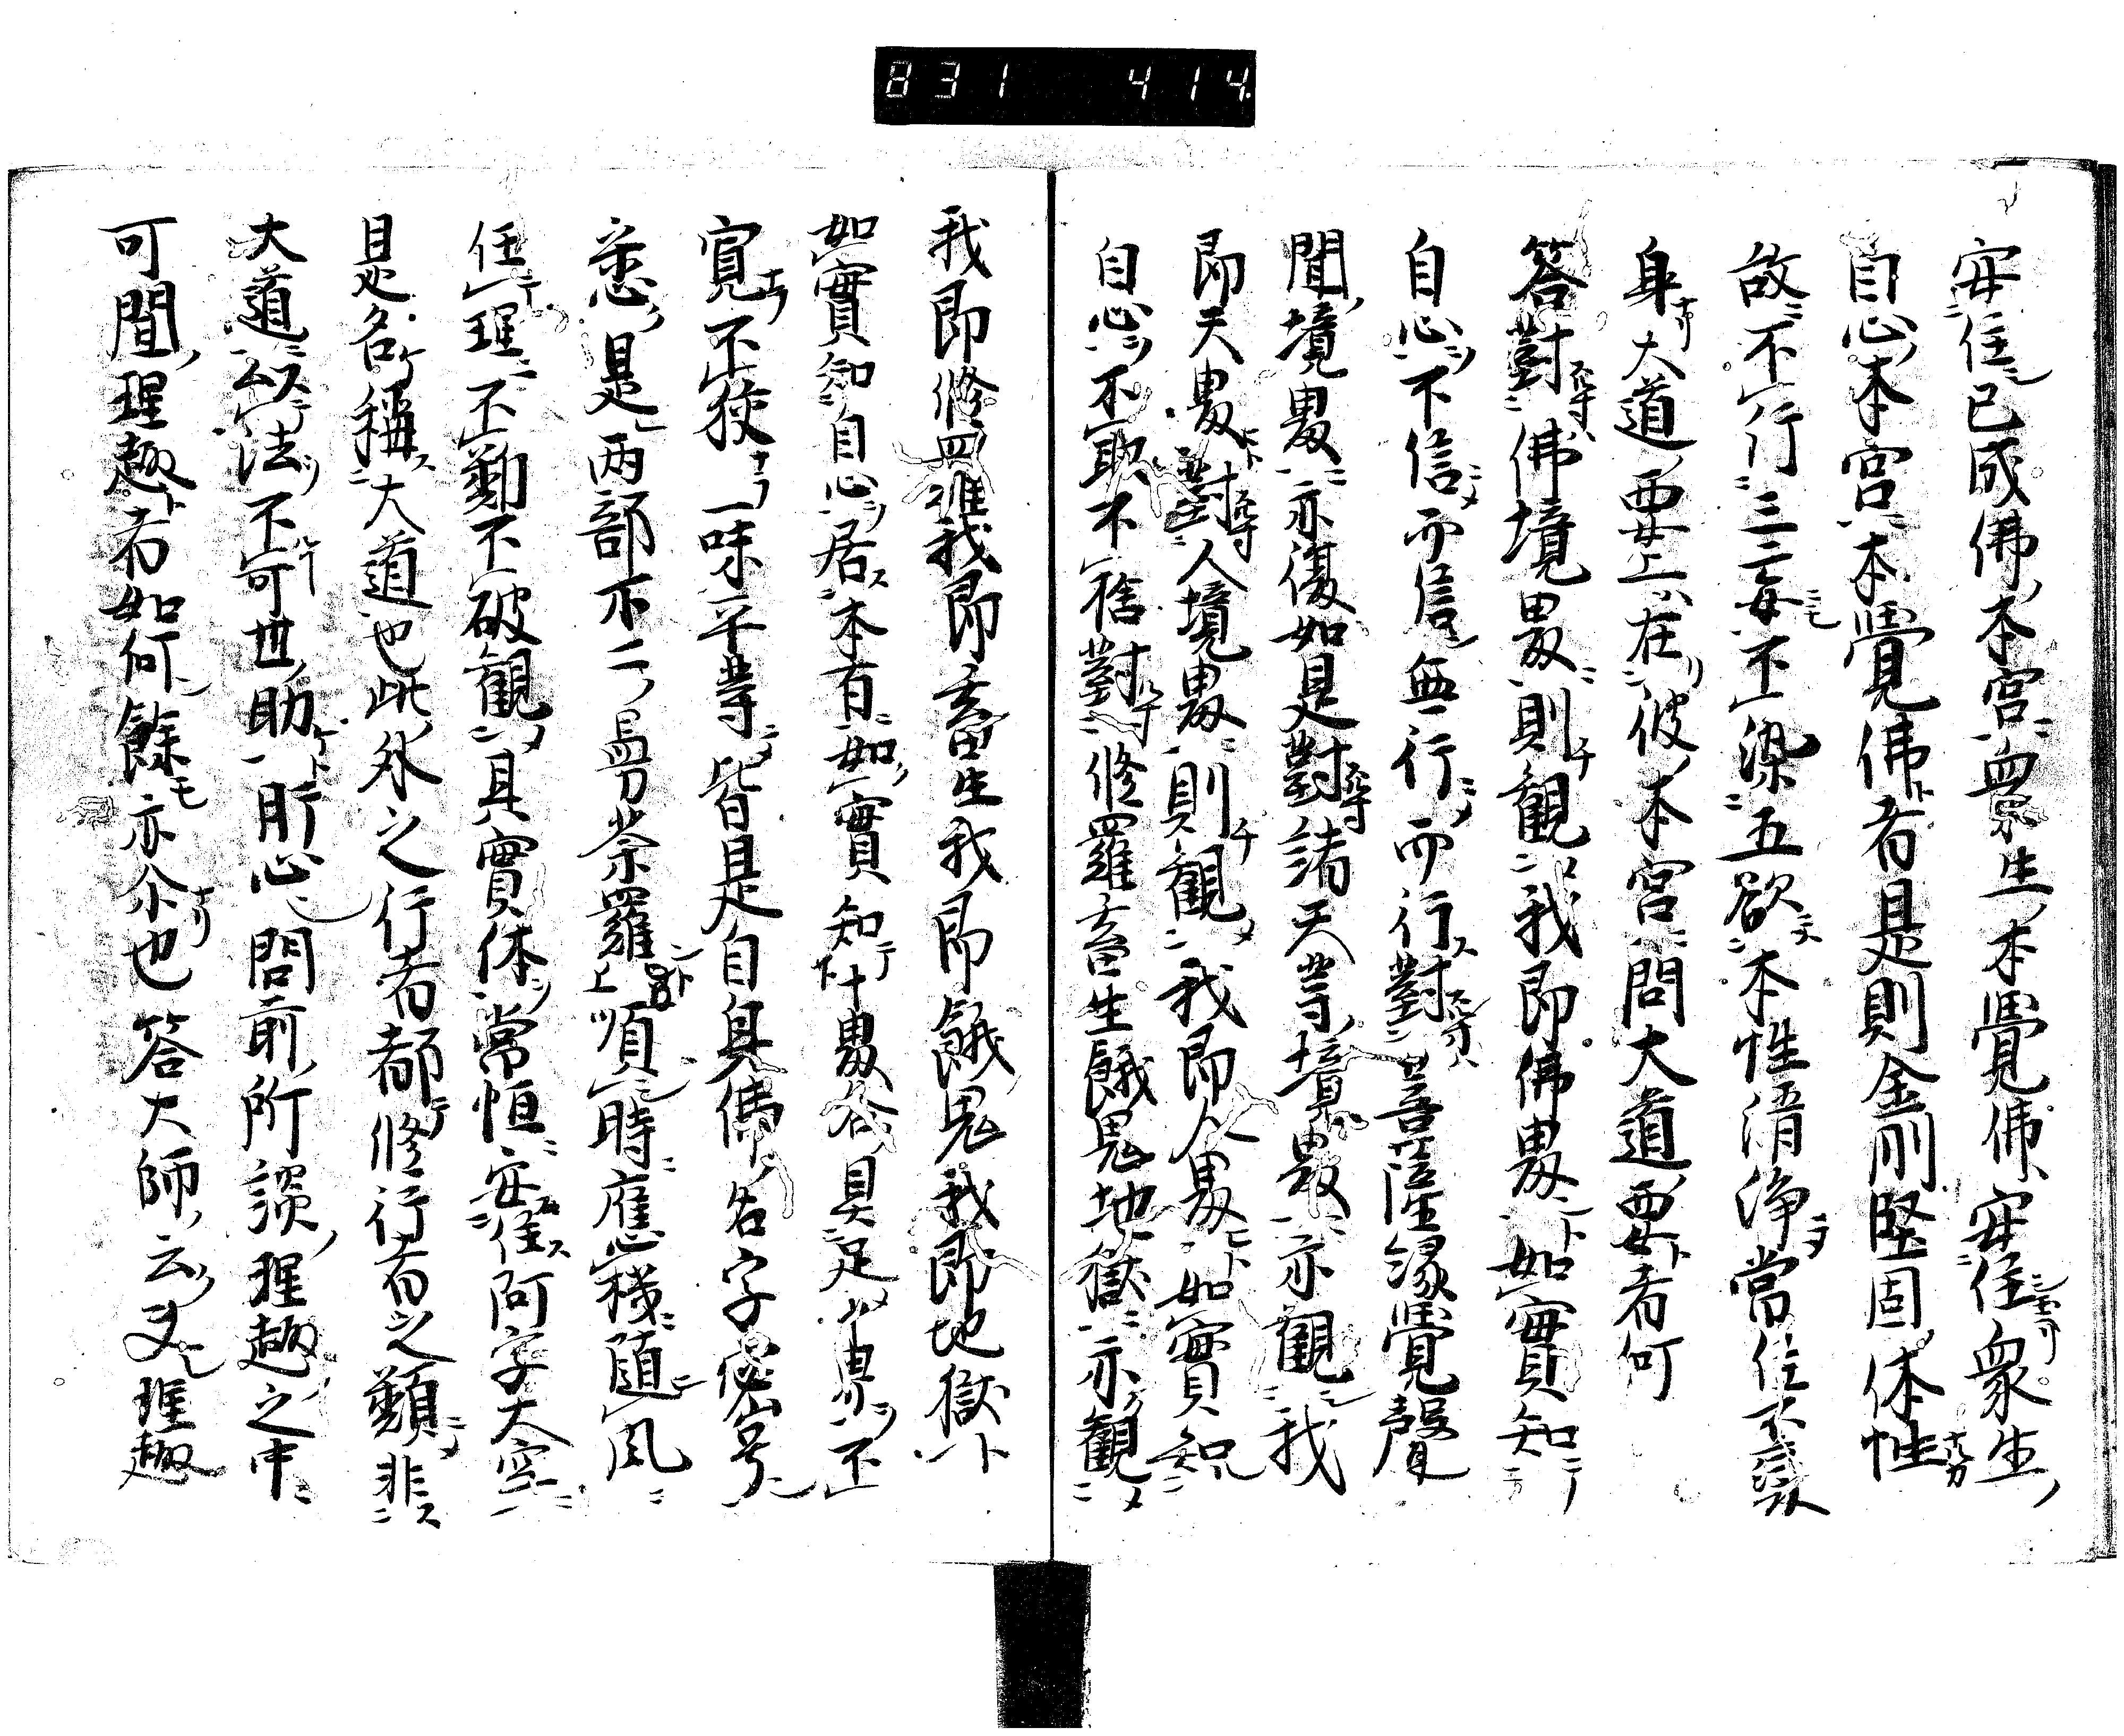 831 414
安住已成佛本宮衆生本覺佛安住衆生
自心本宮本覺佛者是則金剛堅固体性
故不行三毒不染五欲本性清浄常住不變
身大道要上在彼本宮問大道要者何
答對佛境界則觀我即佛界如實知
自心不信而信無行而行對菩薩縁覺聲
聞境界亦復如是對諸天等境界亦觀我
即天界對人境界則觀我即人界如實知
自心不取不捨對修羅畜生餓鬼地獄亦觀
我即修羅我即畜生我即餓鬼我即地獄
如實知自心居本有如實知十界各具足十界不
寛不狭一味平等皆是自身佛名字密号
悉是両部不二曼荼羅順時應機随風
任理不動不破觀其實体常恒安住阿字大空
是名稱大道也此外之行者都修行者之類非
大道以法不可世助肝心問前所談理趣之中
可聞理趣者如何餘亦尒也答大師云又理趣